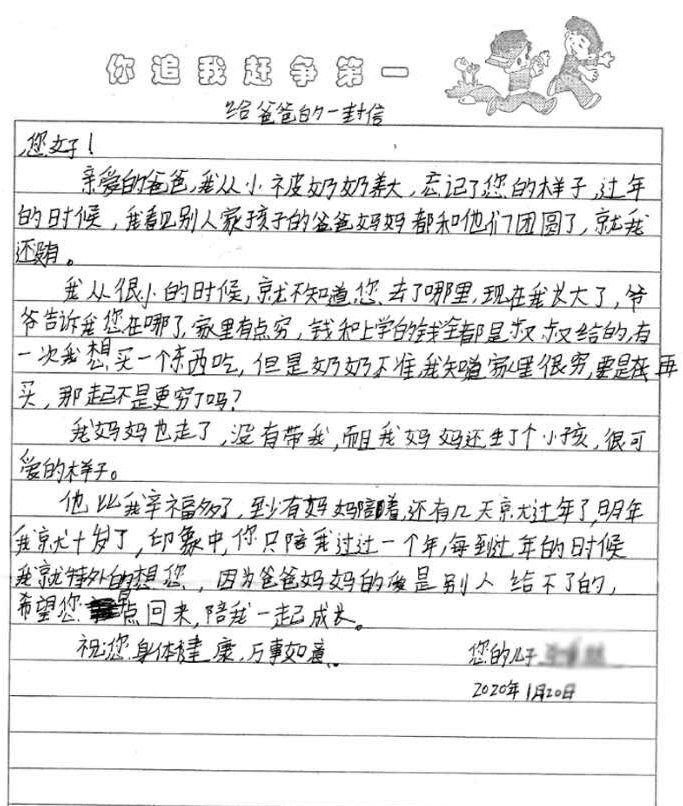 你追我赶争第一
给爸爸的一封信
您好！
亲爱的爸爸,我从小被奶奶养大,忘记了您的样子,过年
的时候,我看见别人家孩子的爸爸妈妈都和他们团圆了,就我
还没有。
我从很小的时候,就不知道您去了哪里,现在我长大了,爷
爷告诉我您在哪了,家里有点穷,钱和上学的钱全都是叔叔给的,有
一次我想买一个东西吃,但是奶奶不准,我知道家里很穷,要是在再
买,那起不是更穷了吗?
我妈妈也走了,没有带我,而且我妈妈还生了个小孩,很可
爱的样子。
他比我幸福多了,至少有妈妈陪着,还有几天就过年了,明年
我就十岁了,印象中,你只陪我过过一个年,每到过年的时候
我就特外的想您,因为爸爸妈妈的爱是别人给不了的,
希望您早点回来,陪我一起成长。
祝您身体健康,万事如意。
您的儿子
2020年1月20日